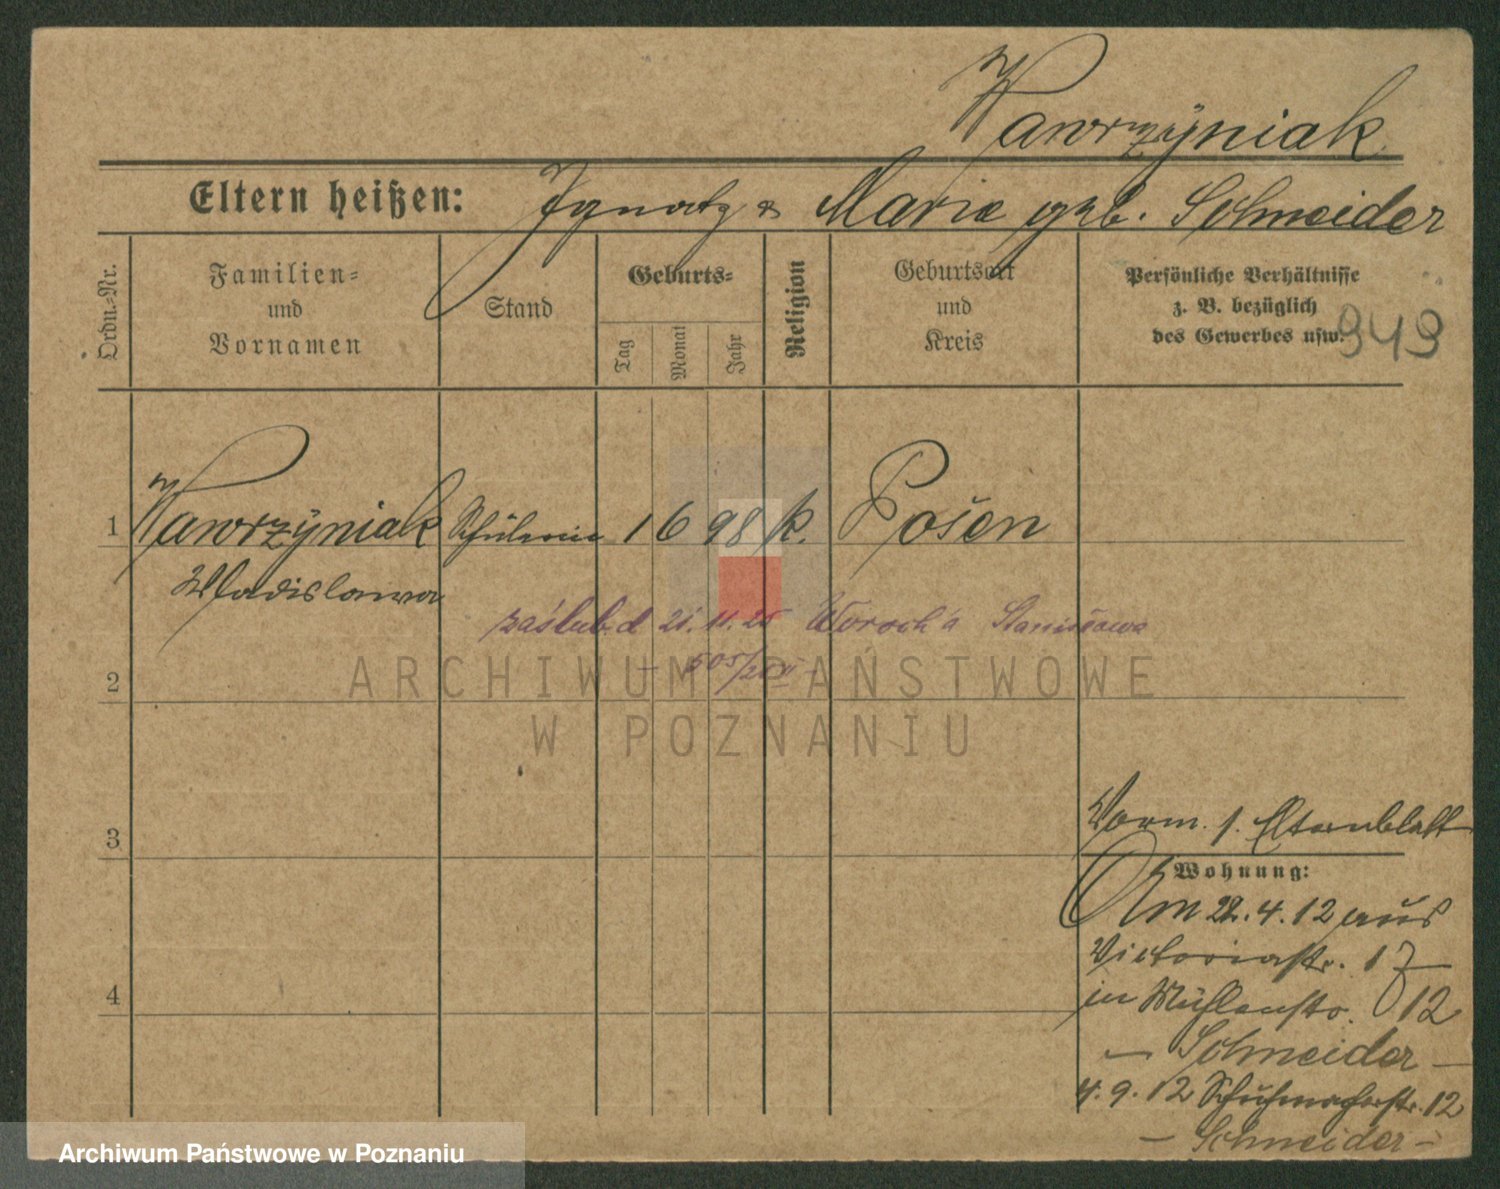 Wawrzyniak
Eltern heißen: Ignatz & Marie geb. Schneider
Ordn.-Nr.
Familien-
und
Vornamen
Stand
Geburts-
Tag
Monat
Jahr
Religion
Geburtsort
und
Kreis
Persönliche Verhältnisse
z. B. bezüglich
des Gewerbes usw.
949
1 Wawrzyniak Schülerin 1 6 98 k. Posen
Wladislawa
zaślub. d 21.11.25 Stanisława
2
505/25
ARCHIWUM PAŃSTWOWE
W POZNANIU
3
Vorm. s. Elternblatt
Wohnung:
Am 22.4.12 aus
Victoriastr. 17
in Mühlenstr. 12
— Schneider —
4
4.9.12 Schuhmacherstr. 12
— Schneider —
Archiwum Państwowe w Poznaniu